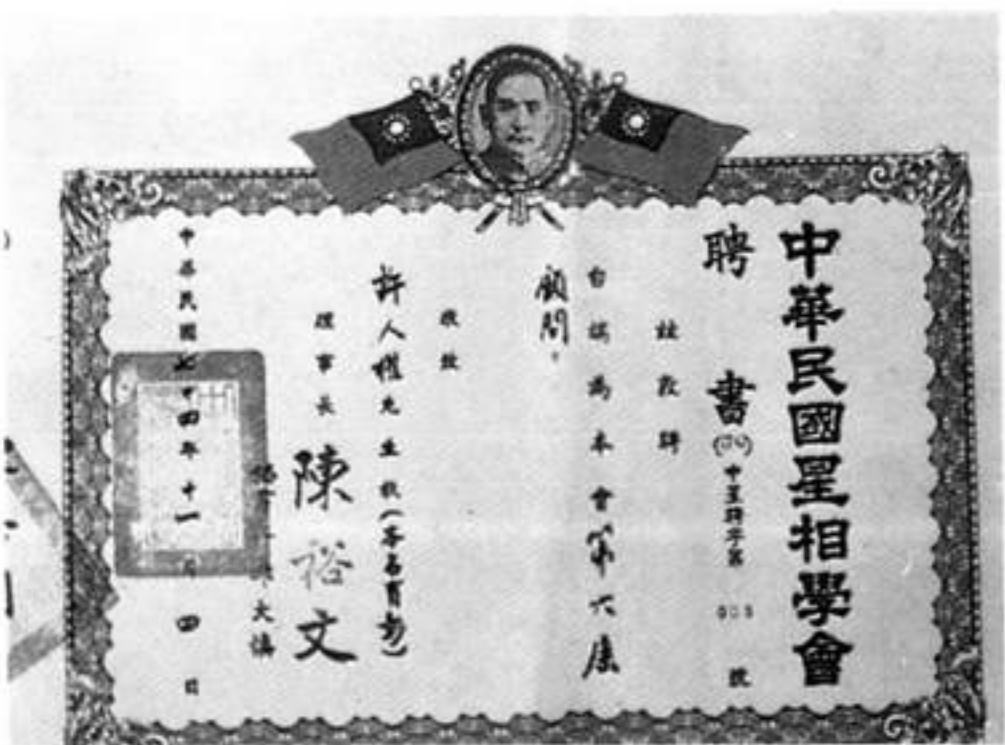 中華民國星相學會
聘書
中星聘字第 號
茲敦聘
台端為本會第六屆
顧問。
敬致
許人權先生收
理事長 陳裕文
大慎
中華民國七十四年十一月四日